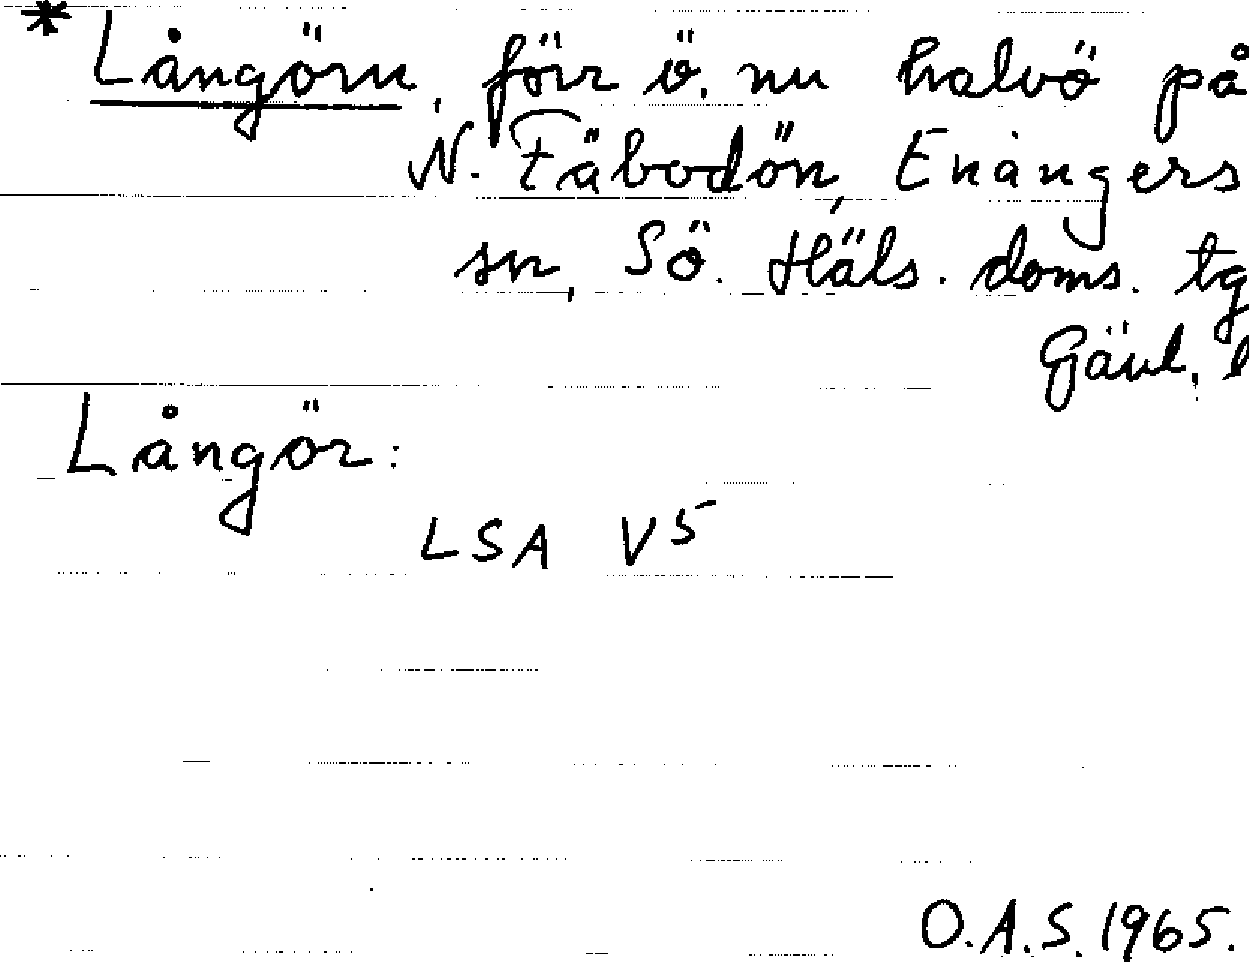 * Långörn, förr ö, nu halvö på
N. Fäbodön, Enångers
sn, Sö. Häls. doms. tg
Gävl. l
Långör:
LSA V5
O.A.S. 1965.